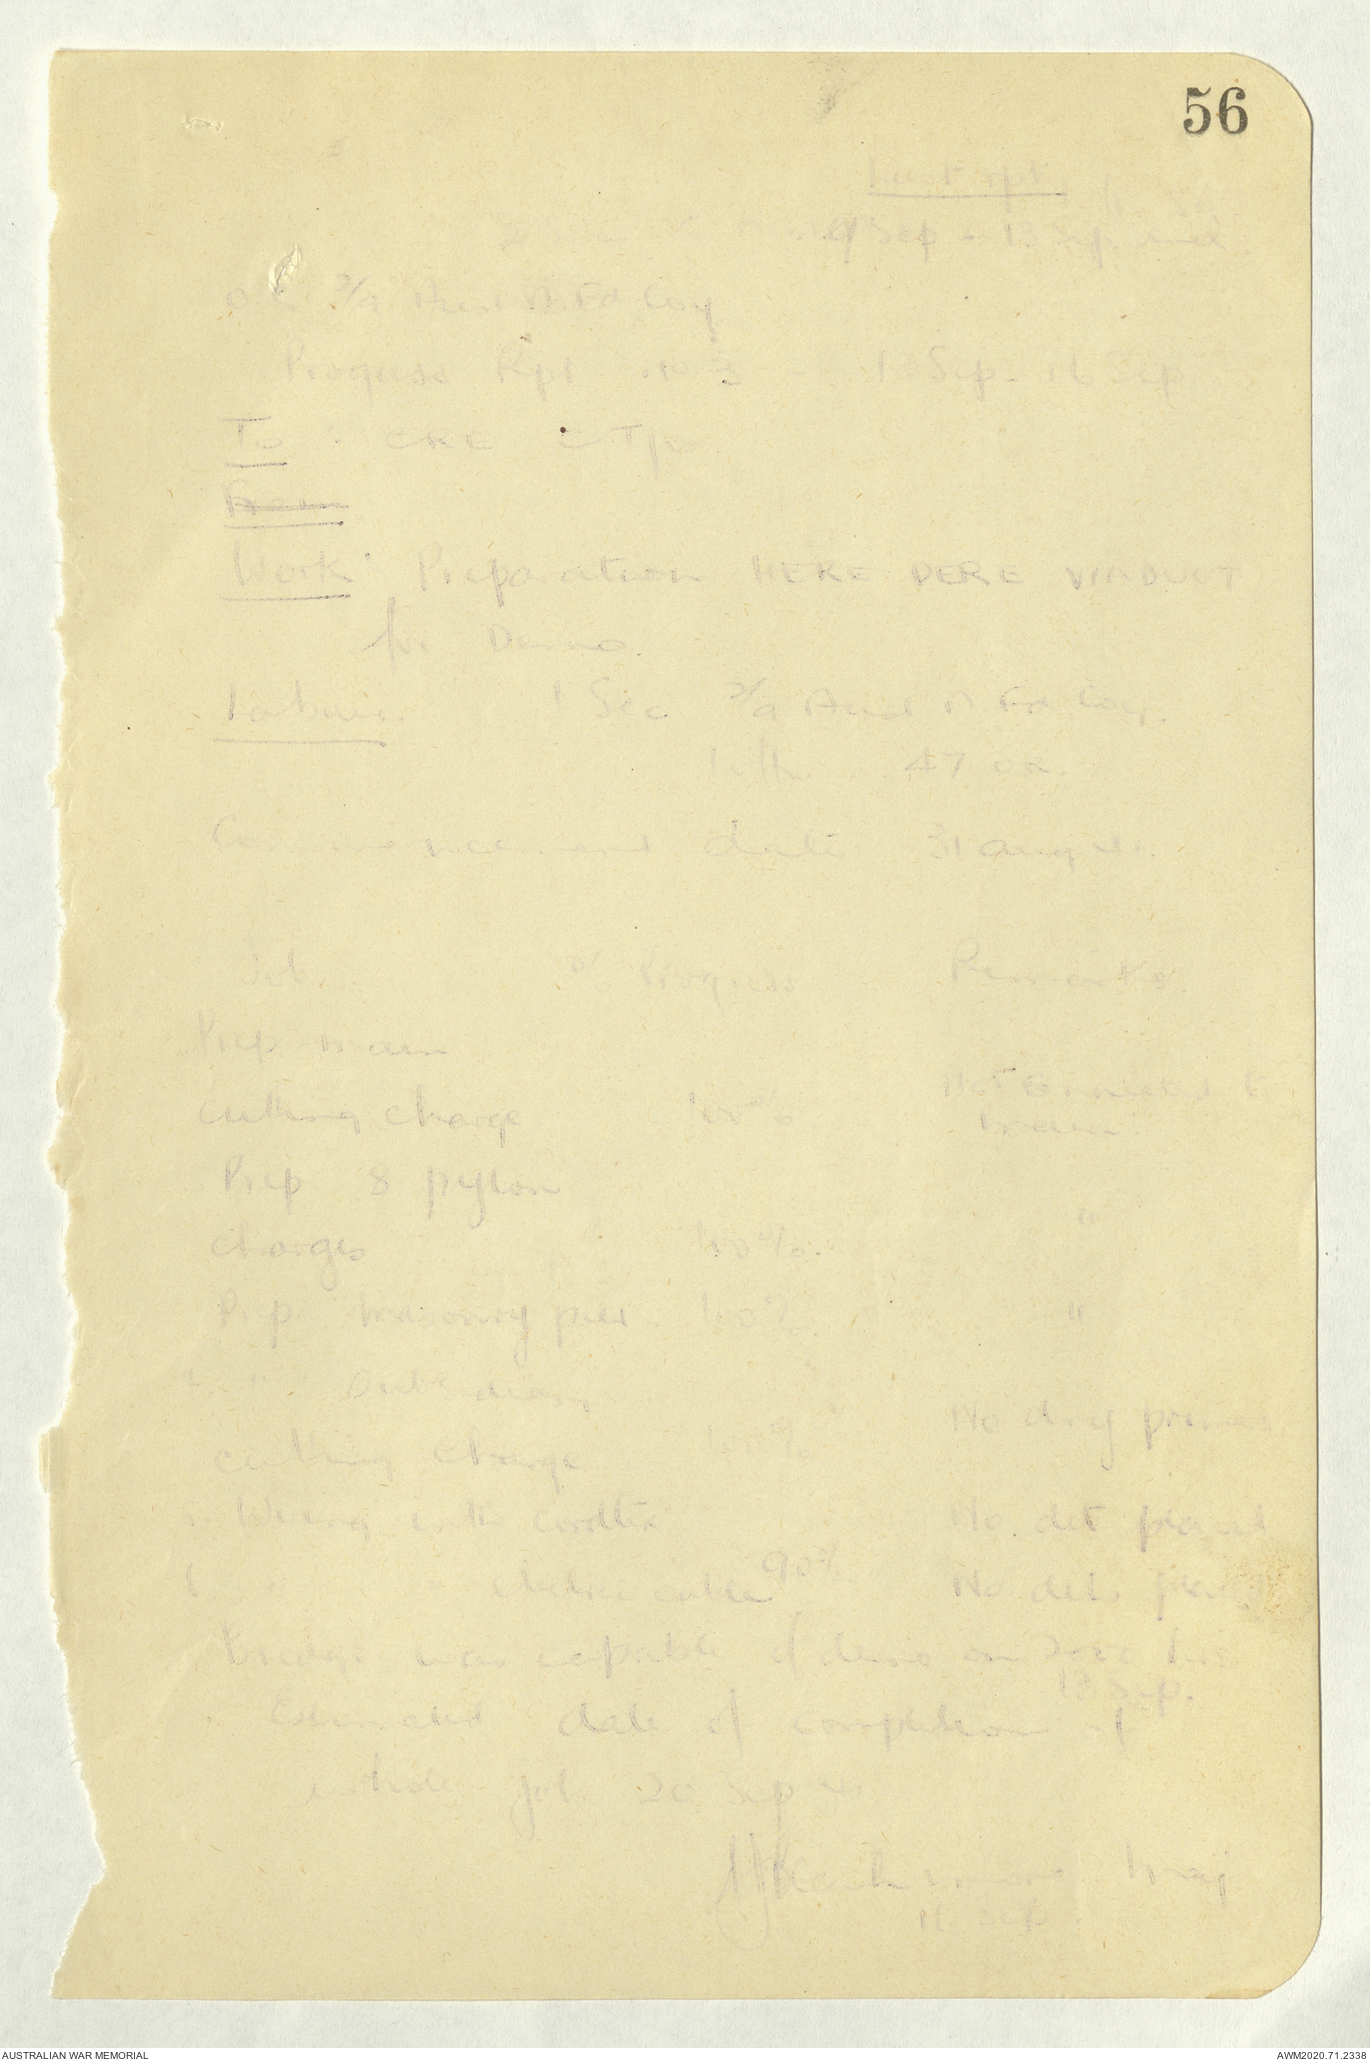 56
Last rpt
9 Sep - 13 Sep incl.
O.C. 2/9 Aust A. Fd Coy
Progress Rpt No 3 - 1 Sep - 16 Sep
To : CRE C Tps
From
Work: Preparation HERE DERE VIADUCT
for Demo.
Labour. 1 Sec 2/9 Aust A Fd Coy.
47 OR.
Commencement date 31 Aug 41.
Job. % Progress Remarks.
Prep main
cutting charge 100% Not connected to
main.
Prep 8 pylon
charges 100%. "
Prep. masonry pier 100%. "
" Subsidiary
cutting charge 100% No dry primers
Wiring with cordtex No det placed
" electric cable 90% No dets
Bridge was capable of demo on hrs
13 Sep.
Estimated date of completion of
whole job 20 Sep 41.
Maj
Sep
AUSTRALIAN WAR MEMORIAL AWM2020.71.2338